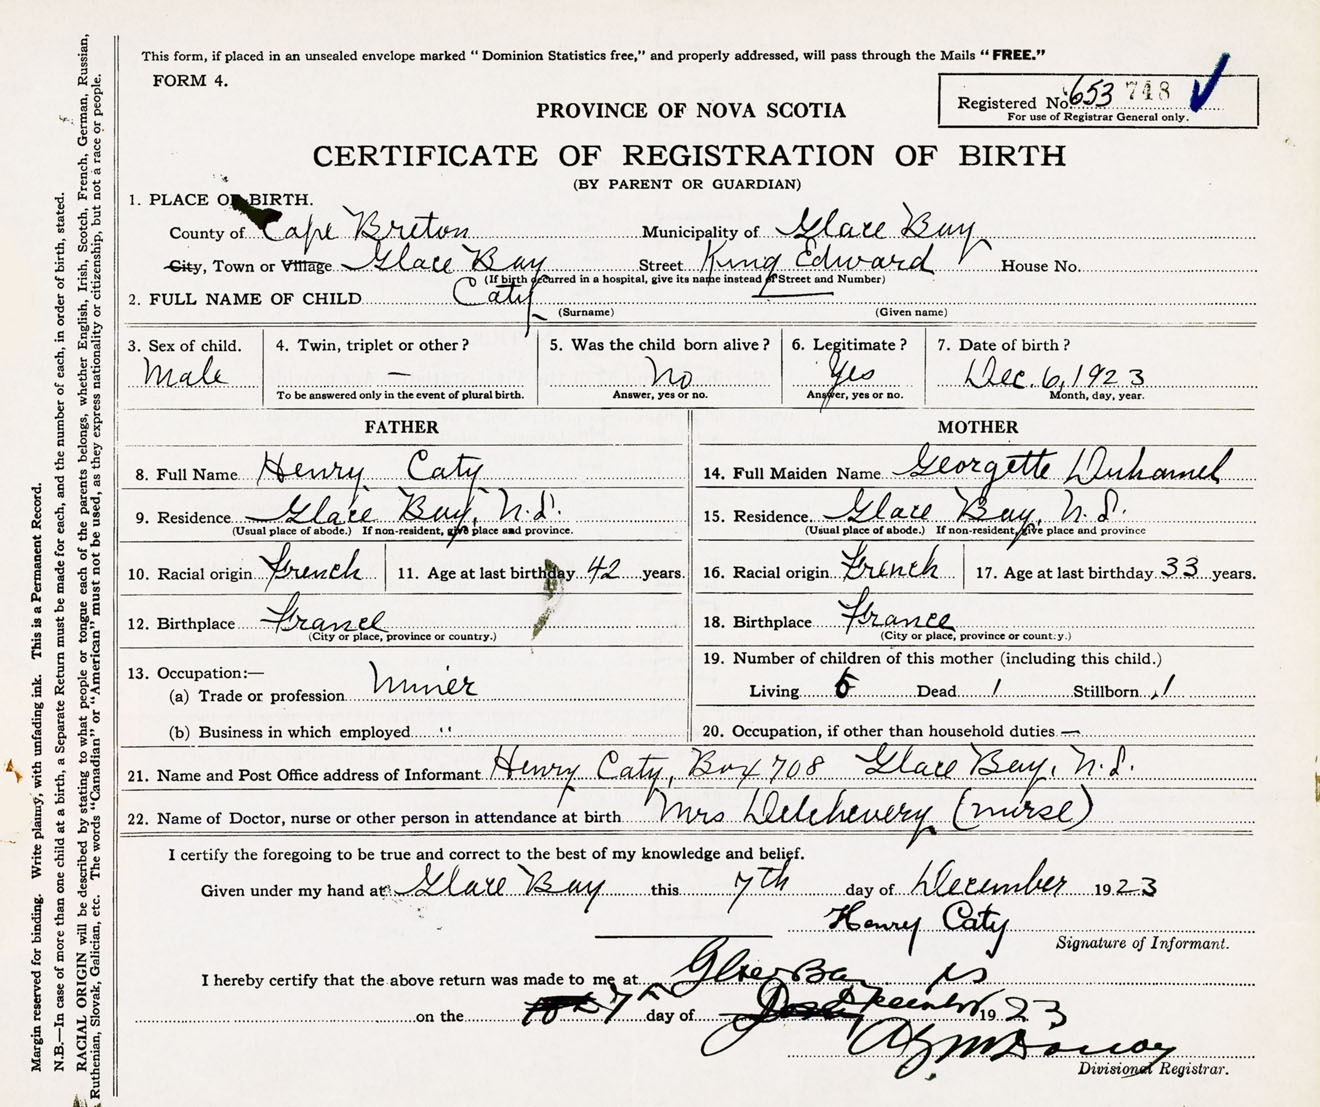 This form, if placed in an unsealed envelope marked "Dominion Statistics free," and properly addressed, will pass through the Mails "FREE."
FORM 4.
Registered No. 653 748
For use of Registrar General only.
PROVINCE OF NOVA SCOTIA
CERTIFICATE OF REGISTRATION OF BIRTH
(BY PARENT OR GUARDIAN)
1. PLACE OF BIRTH.
County of Cape Breton Municipality of Glace Bay
City, Town or Village Glace Bay Street King Edward House No.
(If birth occurred in a hospital, give its name instead of Street and Number)
2. FULL NAME OF CHILD Caty
(Surname) (Given name)
3. Sex of child. 4. Twin, triplet or other? 5. Was the child born alive? 6. Legitimate? 7. Date of birth?
Male — No Yes Dec. 6, 1923
To be answered only in the event of plural birth. Answer, yes or no. Answer, yes or no. Month, day, year.
FATHER
8. Full Name Henry Caty
9. Residence Glace Bay, N.S.
(Usual place of abode.) If non-resident, give place and province.
10. Racial origin French 11. Age at last birthday 42 years.
12. Birthplace France
(City or place, province or country.)
13. Occupation:—
(a) Trade or profession Miner
(b) Business in which employed "
MOTHER
14. Full Maiden Name Georgette Duhamel
15. Residence Glace Bay, N.S.
(Usual place of abode.) If non-resident, give place and province
16. Racial origin French 17. Age at last birthday 33 years.
18. Birthplace France
(City or place, province or country.)
19. Number of children of this mother (including this child.)
Living 5 Dead 1 Stillborn 1
20. Occupation, if other than household duties —
21. Name and Post Office address of Informant Henry Caty, Box 708 Glace Bay, N.S.
22. Name of Doctor, nurse or other person in attendance at birth Mrs Delchevery (nurse)
I certify the foregoing to be true and correct to the best of my knowledge and belief.
Given under my hand at Glace Bay this 7th day of December 1923
Henry Caty
Signature of Informant.
I hereby certify that the above return was made to me at Glace Bay
on the 7 day of December 1923
Divisional Registrar.
Margin reserved for binding. Write plainly, with unfading ink. This is a Permanent Record.
N.B.—In case of more than one child at a birth, a Separate Return must be made for each, and the number of each, in order of birth, stated.
RACIAL ORIGIN will be described by stating to what people or tongue each of the parents belongs, whether English, Irish, Scotch, French, German, Russian,
Ruthenian, Slovak, Galician, etc. The words "Canadian" or "American" must not be used, as they express nationality or citizenship, but not a race or people.